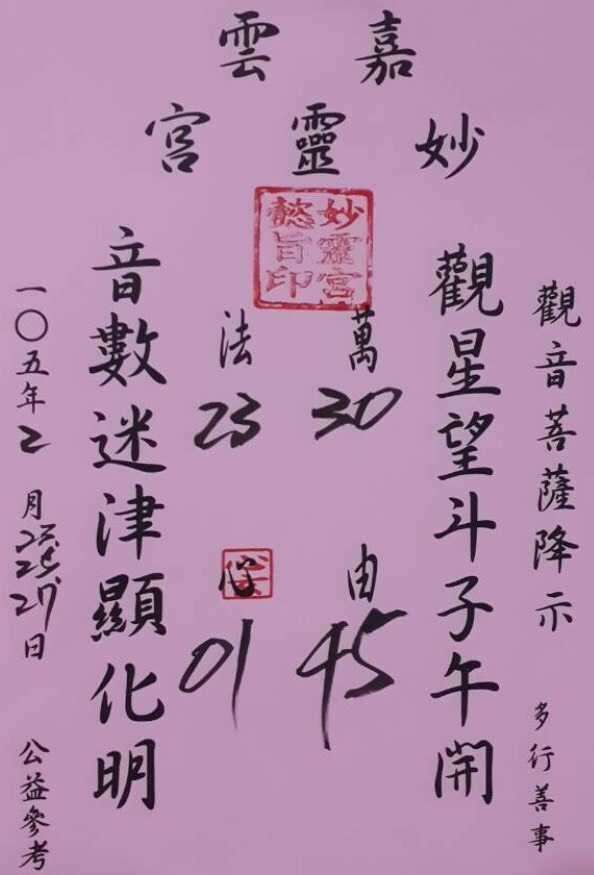 嘉雲
妙靈宮
妙靈宮
懿旨印
觀音菩薩降示 多行善事
觀星望斗子午開
萬 30 由 45
法 23 心 01
音數迷津顯化明
一〇五年2月 27日 公益參考